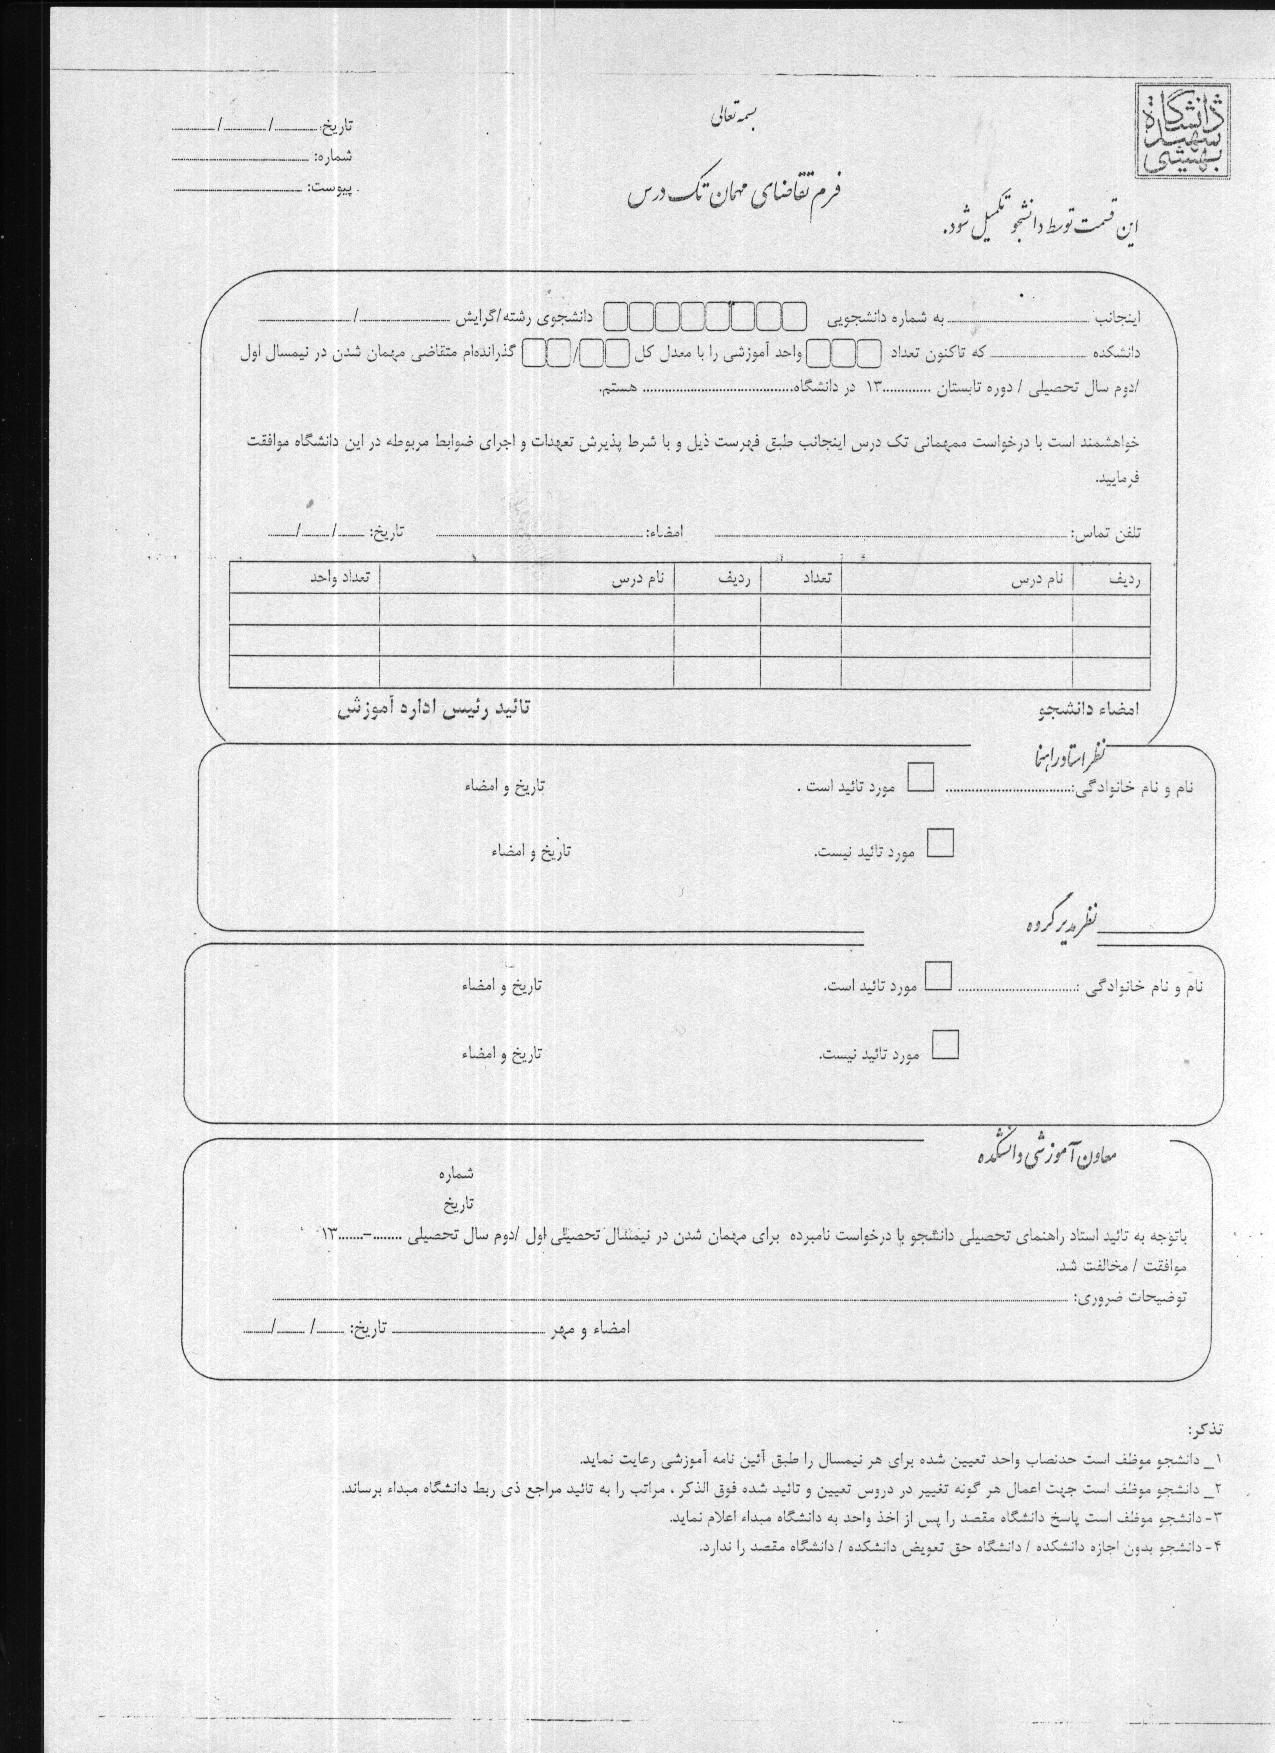 دانشگاه شهید بهشتی
بسمه تعالی
تاریخ: ......./......./.......
شماره: ....................
پیوست: ....................
فرم تقاضای مهمان تک درس
این قسمت توسط دانشجو تکمیل شود.
اینجانب .................... به شماره دانشجویی دانشجوی رشته/گرایش ............../..............
دانشکده .............. که تاکنون تعداد واحد آموزشی را با معدل کل / گذرانده‌ام متقاضی مهمان شدن در نیمسال اول
/دوم سال تحصیلی / دوره تابستان ............۱۳ در دانشگاه........................................ هستم.
خواهشمند است با درخواست ممهمانی تک درس اینجانب طبق فهرست ذیل و با شرط پذیرش تعهدات و اجرای ضوابط مربوطه در این دانشگاه موافقت
فرمایید.
تلفن تماس: ........................................ امضاء: .............................. تاریخ: ....../....../......
ردیف نام درس تعداد ردیف نام درس تعداد واحد
امضاء دانشجو تائید رئیس اداره آموزش
نظر استاد راهنما
نام و نام خانوادگی:................................ مورد تائید است . تاریخ و امضاء
مورد تائید نیست. تاریخ و امضاء
نظر مدیر گروه
نام و نام خانوادگی :.............................. مورد تائید است. تاریخ و امضاء
مورد تائید نیست. تاریخ و امضاء
معاون آموزشی دانشکده
شماره
تاریخ
باتوجه به تائید استاد راهنمای تحصیلی دانشجو با درخواست نامبرده برای مهمان شدن در نیمسال تحصیلی اول /دوم سال تحصیلی .......–.......۱۳
موافقت / مخالفت شد.
توضیحات ضروری: ............................................................
امضاء و مهر .................... تاریخ: ....../ ....../......
تذکر:
۱_ دانشجو موظف است حدنصاب واحد تعیین شده برای هر نیمسال را طبق آئین نامه آموزشی رعایت نماید.
۲_ دانشجو موظف است جهت اعمال هر گونه تغییر در دروس تعیین و تائید شده فوق الذکر ، مراتب را به تائید مراجع ذی ربط دانشگاه مبداء برساند.
۳- دانشجو موظف است پاسخ دانشگاه مقصد را پس از اخذ واحد به دانشگاه مبداء اعلام نماید.
۴- دانشجو بدون اجازه دانشکده / دانشگاه حق تعویض دانشکده / دانشگاه مقصد را ندارد.